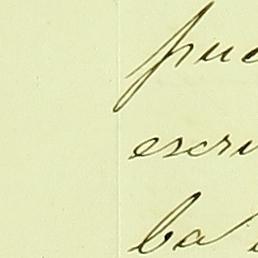 pue
escri
ba